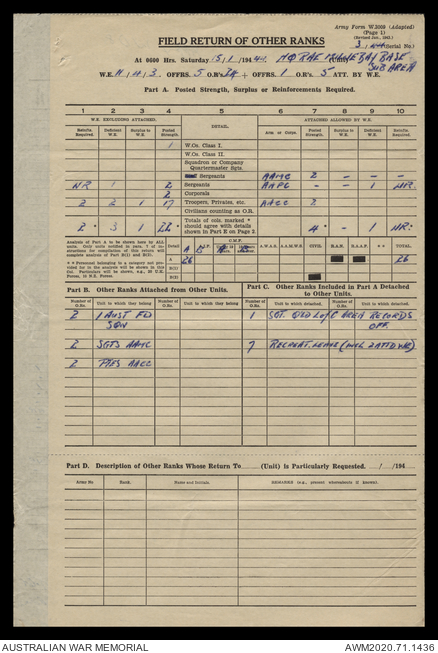 Army Form W.3009 (Adapted)
(Page 1)
FIELD RETURN OF OTHER RANKS
3 (Serial No.)
At 0600 Hrs. Saturday 15/1/1944. HQ RAE MILNE BAY BASE
SUB AREA
W.E. II/4/3. OFFRS. 5 O.R's. 24 + OFFRS. 1 O.R's. 5 ATT. BY W.E.
Part A. Posted Strength, Surplus or Reinforcements Required.
1 2 3 4 5 6 7 8 9 10
W.E. EXCLUDING ATTACHED. DETAIL ATTACHED ALLOWED BY W.E.
Reinfts. Required. Deficient W.E. Surplus to W.E. Posted Strength. Arm or Corps. Posted Strength. Surplus to W.E. Deficient W.E. Reinfts. Required.
1 W.Os. Class I.
W.Os. Class II.
Squadron or Company
Quartermaster Sgts.
Sergeants AAMC 2 – – –
NR 1 2 Sergeants AAPC – – 1 NR.
2 Corporals
2 2 1 17 Troopers, Privates, etc. AACC 2
Civilians counting as O.R.
2 * 3 22 * Totals of cols. marked * should agree with details shown in Part E on Page 2. 4 * – 1 NR.
Analysis of Part A to be shown here by all units.
Detail A.I.F. C.M.F. A.W.A.S. A.A.M.W.S. CIVIL R.A.N. R.A.A.F. ** TOTAL
A 26 26
B(1)
B(2)
Part B. Other Ranks Attached from Other Units. Part C. Other Ranks Included in Part A Detached to Other Units.
Number of O.Rs. Unit to which they belong Number of O.Rs. Unit to which they belong Number of O.Rs. Unit to which detached. Number of O.Rs. Unit to which detached.
2 1 AUST FD 1 SGT. QLD L of C AREA RECORDS
SQN OFF.
2 SGTS AAMC 7 RECREAT. LEAVE (INCL 2 ATTD WE)
2 PTES AACC
Part D. Description of Other Ranks Whose Return To (Unit) is Particularly Requested. / /194
Army No Rank. Name and Initials. REMARKS (e.g., present whereabouts if known).
AUSTRALIAN WAR MEMORIAL AWM2020.71.1436